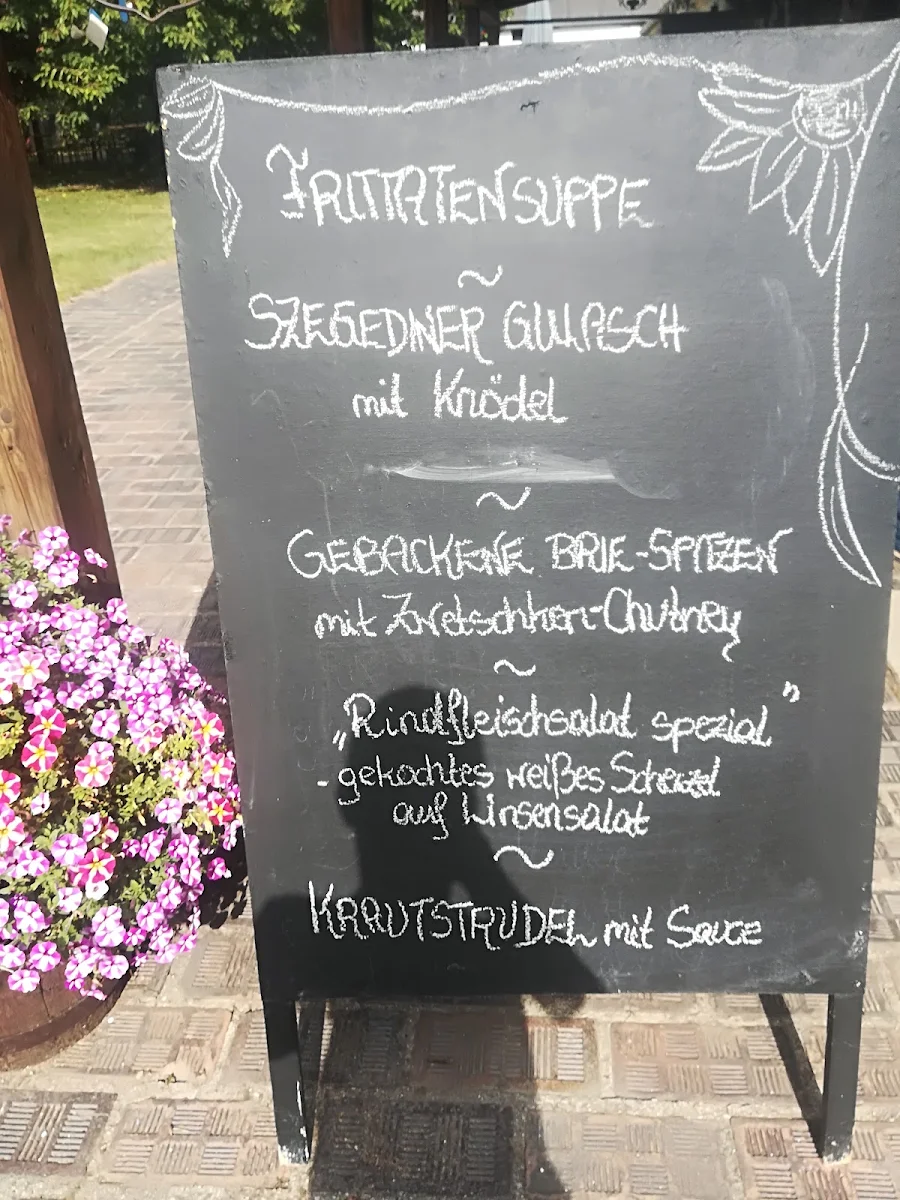 FRITTATENSUPPE
~
SZEGEDNER GULASCH
mit Knödel
~
GEBACKENE BRIE-SPITZEN
mit Zwetschken-Chutney
~
„Rindfleischsalat spezial"
- gekochtes weißes Scherzel
auf Linsensalat
~
KRAUTSTRUDEL mit Sauce